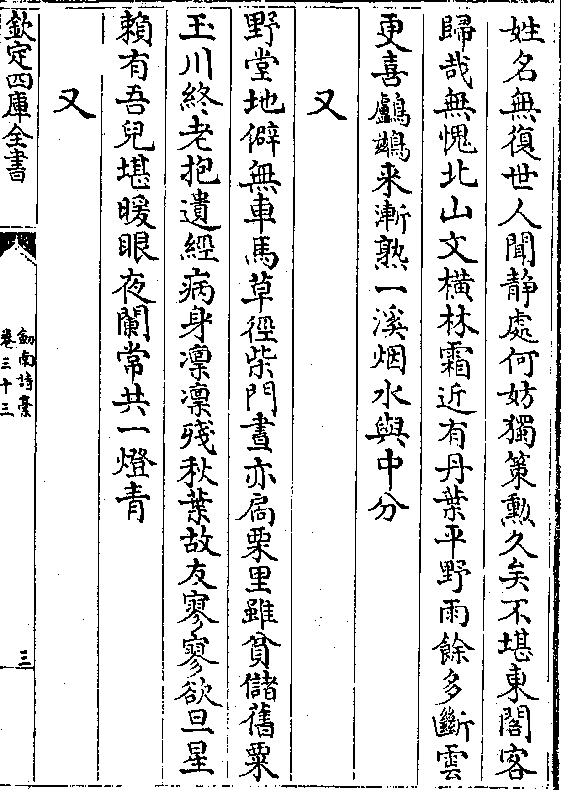 姓名無復世人聞靜處何妨獨策勲久矣不堪東閣客
歸哉無愧北山文橫林霜近有丹葉平野雨餘多斷雲
更喜鸕鷀来漸熟一溪烟水與中分
又
野堂地僻無車馬草徑柴門晝亦扃栗里雖貧儲舊粟
玉川終老抱遺經病身凛凛殘秋葉故友寥寥欲旦星
賴有吾兒堪暖眼夜闌常共一燈青
又
欽定四庫全書
劎南詩稾
卷三十三
三